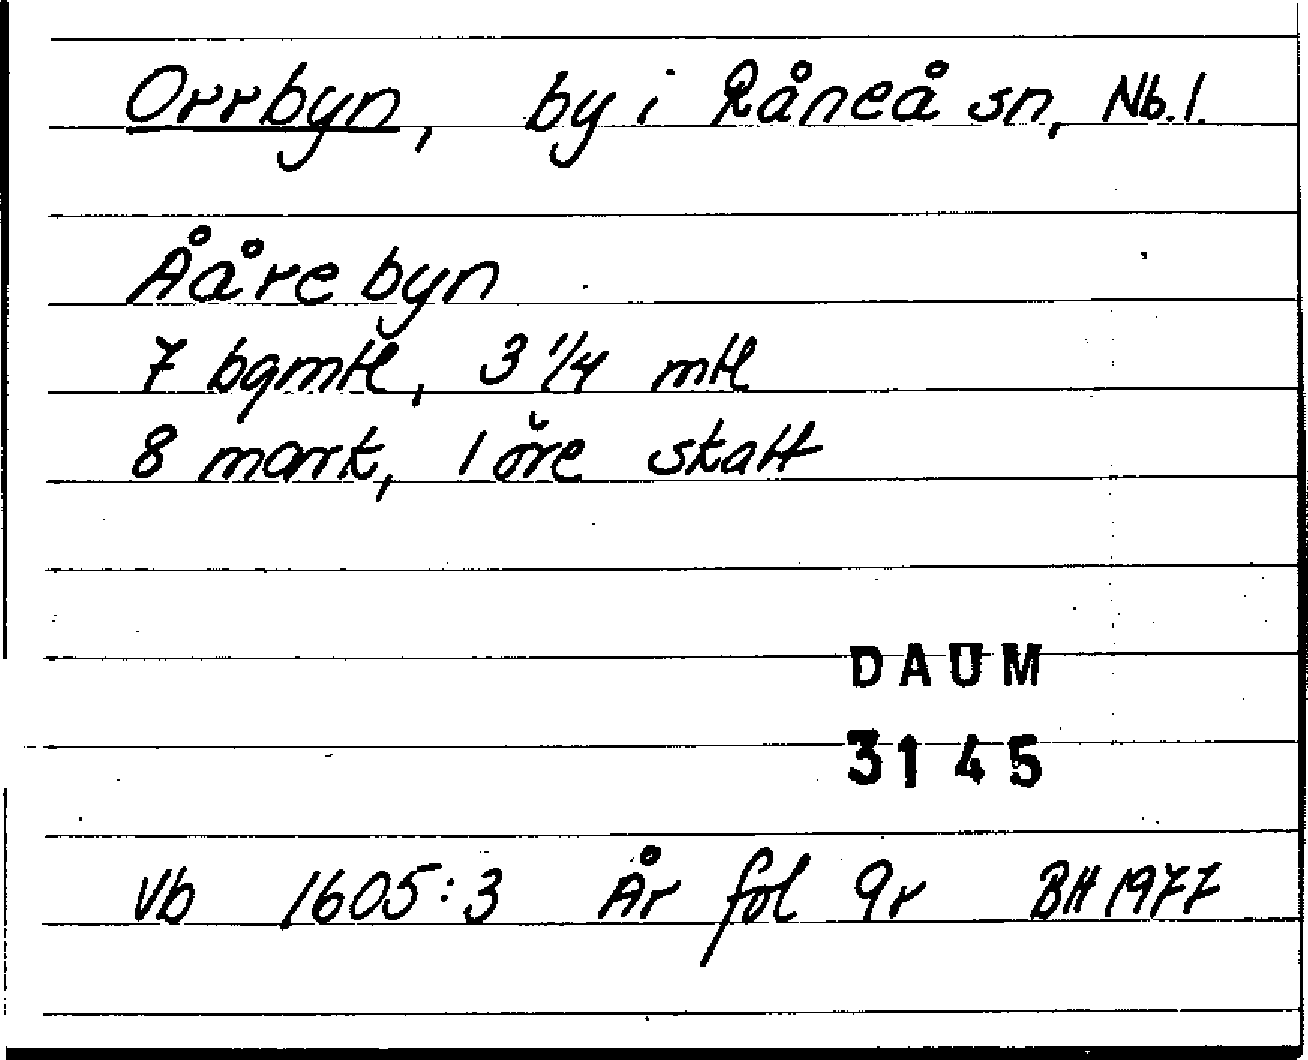 Orrbyn, by i Råneå sn, Nb. l.
Ååre byn
7 bgmtl, 3 1/4 mtl
8 mark, 1 öre skatt
DAUM
3145
Vb 1605:3 År fol 9r BH 1977